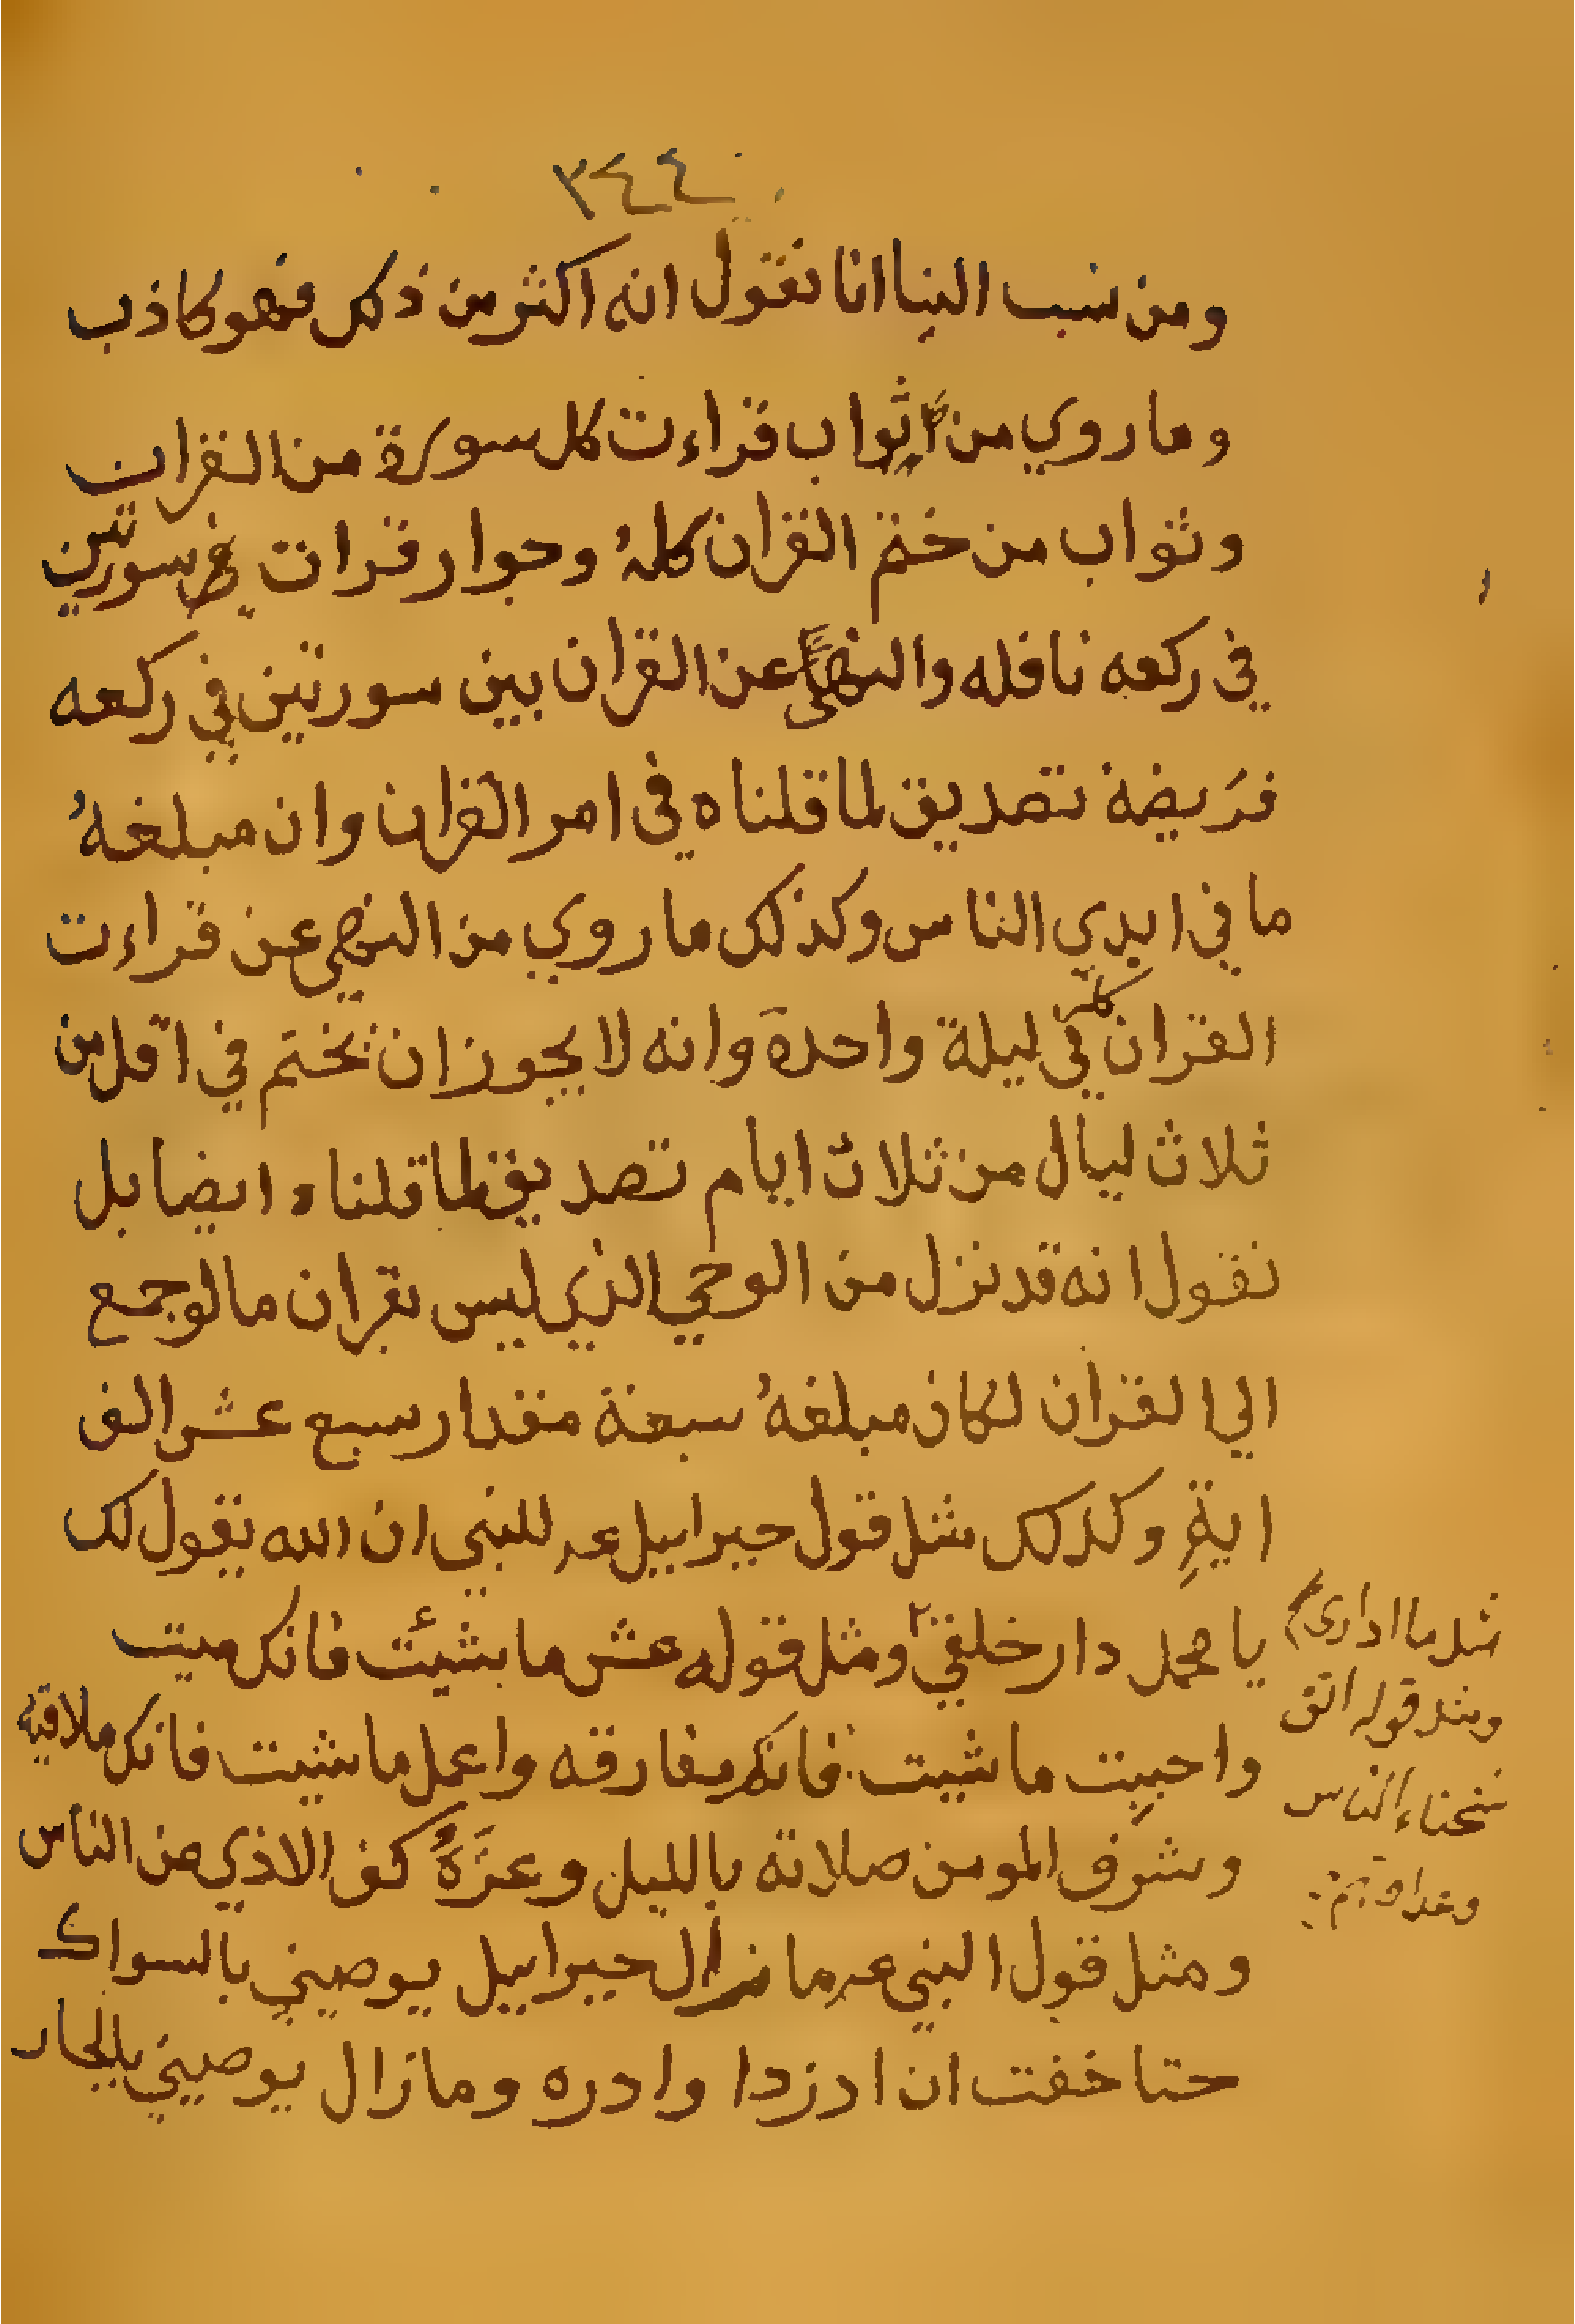 ٣٤٤
ومن نسب الينا انا نقول انه اكثر من ذلك فهو كاذب
وما روي من ثواب قراءت كل سورة من القران
وثواب من ختم القران كلهُ وجواز قرات سورتين
في ركعه نافله والنهي عن القران بين سورتين في ركعه
فرَيضة تصديق لما قلناه في امر القران وان مبلغهُ
ما في ايدي الناس وكذلك ما روي من النهي عن قراءت
القران كله في ليلة واحدة وانه لا يجوز ان تختم في اقل من
ثلاث ليال من ثلاث ايام تصديق لما قلناه ايضا بل
نقول انه قد نزل من الوحي الذي ليس بقران ما لو جمع
الي القران لكان مبلغهُ سبعة مقدار سبع عشر الف
ايةِ وكذلك مثل قول جبراييل عم للنبي ان الله يقول لك
يا محمد دار خلقي ٢ ومثل قوله عش ما شيئت فانك ميت
واحببت ما شيت فانك مفارقه واعمل ما شيت فانك ملاقيه
وشرف المومن صلاته بالليل وعزَّهُ كف الاذي عن الناس
ومثل قول النبي عم ما زال جبراييل يوصيني بالسواك
حتا خفت ان ادردا وادره وما زال يوصيني بالجار
مثل ما اداري
ومثل قوله اتق
شحناء الناس
وعداوتهم